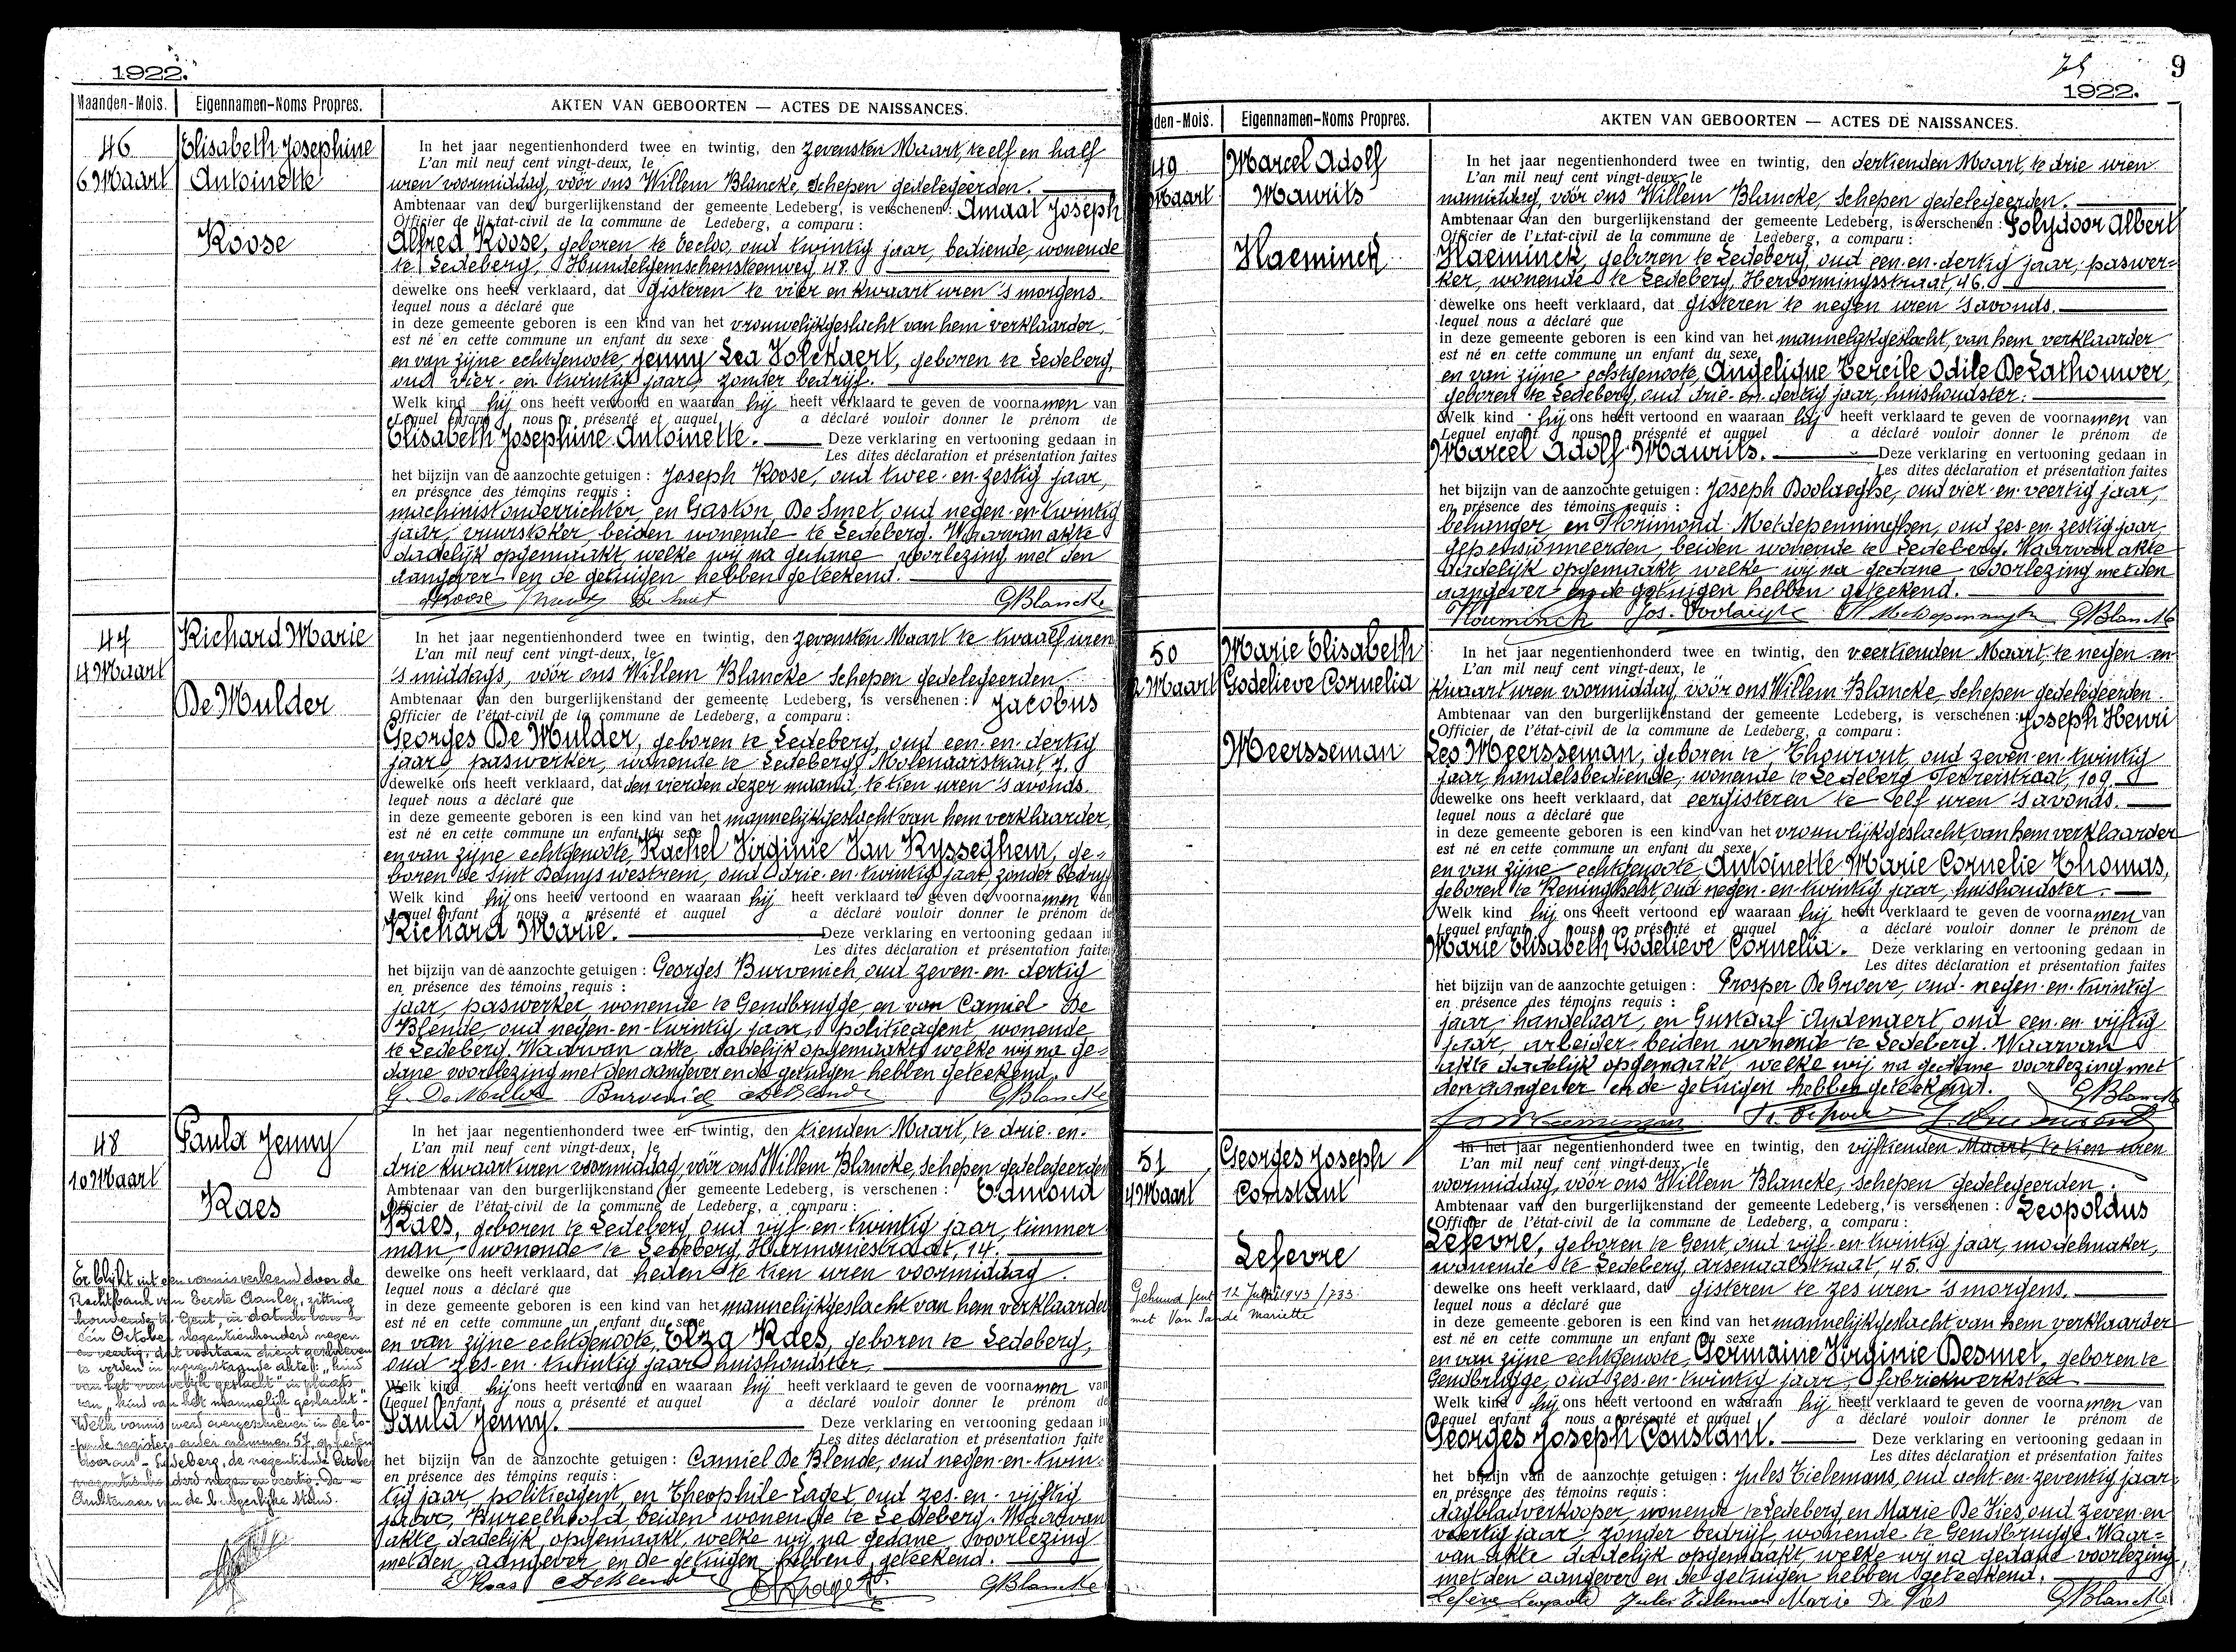 1922.
Maanden-Mois. Eigennamen-Noms Propres. AKTEN VAN GEBOORTEN — ACTES DE NAISSANCES.
46
6 Maart
Elisabeth Josephine
Antoinette
Roose
In het jaar negentienhonderd twee en twintig, den zevensten Maart, te elf en half
L'an mil neuf cent vingt-deux, le
uren voormiddag, vóór ons Willem Blancke, Schepen gedelegeerden.
Ambtenaar van den burgerlijkenstand der gemeente Ledeberg, is verschenen: Amaat Joseph
Officier de l'état-civil de la commune de Ledeberg, a comparu:
Alfred Roose, geboren te Eecloo, oud twintig jaar, bediende, wonende
te Ledeberg, Hundelgemschensteenweg, 48.
dewelke ons heeft verklaard, dat gisteren te vier en kwaart uren 's morgens.
lequel nous a déclaré que
in deze gemeente geboren is een kind van het vrouwelijkgeslacht van hem verklaarder,
est né en cette commune un enfant du sexe
en van zijne echtgenoote, Jenny Lea Volckaert, geboren te Ledeberg,
oud vier-en-twintig jaar, zonder bedrijf.
Welk kind hij ons heeft vertoond en waaraan hij heeft verklaard te geven de voornamen van
Lequel enfant nous a présenté et auquel a déclaré vouloir donner le prénom de
Elisabeth Josephine Antoinette. Deze verklaring en vertooning gedaan in
Les dites déclaration et présentation faites
het bijzijn van de aanzochte getuigen: Joseph Roose, oud twee-en-zestig jaar,
en présence des témoins requis:
machinist onderrichter, en Gaston De Smet, oud negen-en-twintig
jaar, vuurstoker, beiden wonende te Ledeberg. Waarvan akte
dadelijk opgemaakt, welke wij na gedane voorlezing met den
aangever en de getuigen hebben geteekend.
ARoose De Smet GBlancke
47
4 Maart
Richard Marie
De Mulder
In het jaar negentienhonderd twee en twintig, den zevensten Maart te twaalf uren
L'an mil neuf cent vingt-deux, le
's middags, vóór ons Willem Blancke Schepen gedelegeerden
Ambtenaar van den burgerlijkenstand der gemeente Ledeberg, is verschenen: Jacobus
Officier de l'état-civil de la commune de Ledeberg, a comparu:
Georges De Mulder, geboren te Ledeberg, oud een-en-dertig
jaar, paswerker, wonende te Ledeberg, Molenaarstraat, 7.
dewelke ons heeft verklaard, dat den vierden dezer maand, te tien uren 's avonds.
lequel nous a déclaré que
in deze gemeente geboren is een kind van het mannelijkgeslacht van hem verklaarder,
est né en cette commune un enfant du sexe
en van zijne echtgenoote, Rachel Virginie Van Rysseghem, ge-
boren te Sint Denys westrem, oud drie-en-twintig jaar zonder bedrijf
Welk kind hij ons heeft vertoond en waaraan hij heeft verklaard te geven de voornamen van
Lequel enfant nous a présenté et auquel a déclaré vouloir donner le prénom de
Richard Marie. Deze verklaring en vertooning gedaan in
Les dites déclaration et présentation faites
het bijzijn van de aanzochte getuigen: Georges Burvenich, oud zeven-en-dertig
en présence des témoins requis:
jaar, paswerker, wonende te Gendbrugge, en van Camiel De
Blende, oud negen-en-twintig jaar, politieagent, wonende
te Ledeberg. Waarvan akte, dadelijk opgemaakt, welke wij na ge-
dane voorlezing met den aangever en de getuigen hebben geteekend.
G. De Mulder Burvenich DeBlende GBlancke
48
10 Maart
Paula Jenny
Raes
Er blijkt uit een vonnis verleend door de
Rechtbank van Eerste Aanleg, zitting
houdende te Gent, in datum van
één October negentienhonderd negen
en veertig, dat voortaan dient geschreven
te worden in nevenstaande akte: "kind
van het vrouwelijk geslacht" in plaats
van "kind van het mannelijk geslacht".
Welk vonnis werd overgeschreven in de lo-
pende registers onder nummer 57, op heden
Ledeberg, de negentiende October
negentienhonderd negen en veertig. De
Ambtenaar van de burgerlijke stand.
In het jaar negentienhonderd twee en twintig, den tienden Maart, te drie-en-
L'an mil neuf cent vingt-deux, le
drie kwaart uren voormiddag, vóór ons Willem Blancke, Schepen gedelegeerden
Ambtenaar van den burgerlijkenstand der gemeente Ledeberg, is verschenen: Edmond
Officier de l'état-civil de la commune de Ledeberg, a comparu:
Raes, geboren te Ledeberg, oud vijf-en-twintig jaar, timmer-
man, wonende te Ledeberg, Harmoniestraat, 14.
dewelke ons heeft verklaard, dat heden te tien uren voormiddag.
lequel nous a déclaré que
in deze gemeente geboren is een kind van het mannelijkgeslacht van hem verklaarder
est né en cette commune un enfant du sexe
en van zijne echtgenoote, Elza Raes, geboren te Ledeberg,
oud zes-en-twintig jaar huishoudster.
Welk kind hij ons heeft vertoond en waaraan hij heeft verklaard te geven de voornamen van
Lequel enfant nous a présenté et auquel a déclaré vouloir donner le prénom de
Paula Jenny. Deze verklaring en vertooning gedaan in
Les dites déclaration et présentation faite
het bijzijn van de aanzochte getuigen: Camiel De Blende, oud negen-en-twin-
en présence des témoins requis:
tig jaar, politieagent, en Theophile Laget, oud zes-en-vijftig
jaar, Bureelhoofd, beiden wonende te Ledeberg. Waarvan
akte dadelijk opgemaakt, welke wij na gedane voorlezing
met den aangever en de getuigen hebben geteekend.
ERaes DeBlende ThLaget GBlancke
9
1922.
den-Mois. Eigennamen-Noms Propres. AKTEN VAN GEBOORTEN — ACTES DE NAISSANCES.
49
Maart
Marcel Adolf
Maurits
Haeminck
In het jaar negentienhonderd twee en twintig, den dertienden Maart, te drie uren
L'an mil neuf cent vingt-deux, le
namiddag, vóór ons Willem Blancke, Schepen gedelegeerden.
Ambtenaar van den burgerlijkenstand der gemeente Ledeberg, is verschenen: Polydoor Albert
Officier de l'Etat-civil de la commune de Ledeberg, a comparu:
Haeminck, geboren te Ledeberg, oud een-en-dertig jaar, paswer-
ker, wonende te Ledeberg, Hervormingsstraat, 46.
dewelke ons heeft verklaard, dat gisteren te negen uren 's avonds.
lequel nous a déclaré que
in deze gemeente geboren is een kind van het mannelijkgeslacht, van hem verklaarder
est né en cette commune un enfant du sexe
en van zijne echtgenoote, Angelique Cercile Odile De Lathouwer,
geboren te Ledeberg, oud drie-en-dertig jaar, huishoudster.
Welk kind hij ons heeft vertoond en waaraan hij heeft verklaard te geven de voornamen van
Lequel enfant nous a présenté et auquel a déclaré vouloir donner le prénom de
Marcel Adolf Maurits. Deze verklaring en vertooning gedaan in
Les dites déclaration et présentation faites
het bijzijn van de aanzochte getuigen: Joseph Doolaeghe, oud vier-en-veertig jaar,
en présence des témoins requis:
behanger, en Florimond Metdepenninghen, oud zes-en-zestig jaar,
gepensionneerden, beiden wonende te Ledeberg. Waarvan akte
dadelijk opgemaakt welke wij na gedane voorlezing met den
aangever en de getuigen hebben geteekend.
Haeminck Jos. Doolaeghe Metdepenninghe GBlancke
50
2 Maart
Marie Elisabeth
Godelieve Cornelia
Meersseman
In het jaar negentienhonderd twee en twintig, den veertienden Maart, te negen en
L'an mil neuf cent vingt-deux, le
kwaart uren voormiddag, vóór ons Willem Blancke, Schepen gedelegeerden.
Ambtenaar van den burgerlijkenstand der gemeente Ledeberg, is verschenen: Joseph Henri
Officier de l'état-civil de la commune de Ledeberg, a comparu:
Leo Meersseman, geboren te Thourout, oud zeven-en-twintig
jaar, handelsbediende, wonende te Ledeberg, Ferrerstraat, 109.
dewelke ons heeft verklaard, dat eergisteren te elf uren 's avonds.
lequel nous a déclaré que
in deze gemeente geboren is een kind van het vrouwlijkgeslacht, van hem verklaarder
est né en cette commune un enfant du sexe
en van zijne echtgenoote, Antoinette Marie Cornelie Thomas,
geboren te Reninghelst, oud negen-en-twintig jaar, huishoudster.
Welk kind hij ons heeft vertoond en waaraan hij heeft verklaard te geven de voornamen van
Lequel enfant nous a présenté et auquel a déclaré vouloir donner le prénom de
Marie Elisabeth Godelieve Cornelia. Deze verklaring en vertooning gedaan in
Les dites déclaration et présentation faites
het bijzijn van de aanzochte getuigen: Prosper De Groeve, oud negen-en-twintig
en présence des témoins requis:
jaar, handelaar, en Gustaaf Audenaert, oud een-en-vijftig
jaar, arbeider beiden wonende te Ledeberg. Waarvan
akte dadelijk opgemaakt, welke wij na gedane voorlezing met
den aangever en de getuigen hebben geteekend. GBlancke
51
4 Maart
Georges Joseph
Constant
Lefevre
Gehuwd Gent 12 Juli 1943 / 733.
met Van Sande Mariette
In het jaar negentienhonderd twee en twintig, den vijftienden Maart, te tien uren
L'an mil neuf cent vingt-deux, le
voormiddag, vóór ons Willem Blancke, Schepen gedelegeerden.
Ambtenaar van den burgerlijkenstand der gemeente Ledeberg, is verschenen: Leopoldus
Officier de l'état-civil de la commune de Ledeberg, a comparu:
Lefevre, geboren te Gent, oud vijf-en-twintig jaar, modelmaker,
wonende te Ledeberg, Arsenaalstraat, 45.
dewelke ons heeft verklaard, dat gisteren te zes uren 's morgens.
lequel nous a déclaré que
in deze gemeente geboren is een kind van het mannelijkgeslacht van hem verklaarder
est né en cette commune un enfant du sexe
en van zijne echtgenoote, Germaine Virginie Desmet, geboren te
Gendbrugge, oud zes-en-twintig jaar, fabriekwerkster
Welk kind hij ons heeft vertoond en waaraan hij heeft verklaard te geven de voornamen van
Lequel enfant nous a présenté et auquel a déclaré vouloir donner le prénom de
Georges Joseph Constant. Deze verklaring en vertooning gedaan in
Les dites déclaration et présentation faites
het bijzijn van de aanzochte getuigen: Jules Tielemans, oud acht-en-zeventig jaar,
en présence des témoins requis:
dagbladverkooper, wonende te Ledeberg en Marie De Vies, oud zeven-en
veertig jaar, zonder bedrijf, wonende te Gendbrugge. Waar-
van akte dadelijk opgemaakt, welke wij na gedane voorlezing,
met den aangever en de getuigen hebben geteekend.
Lefevre Leopold Jules Tielemans Marie De Vies GBlancke